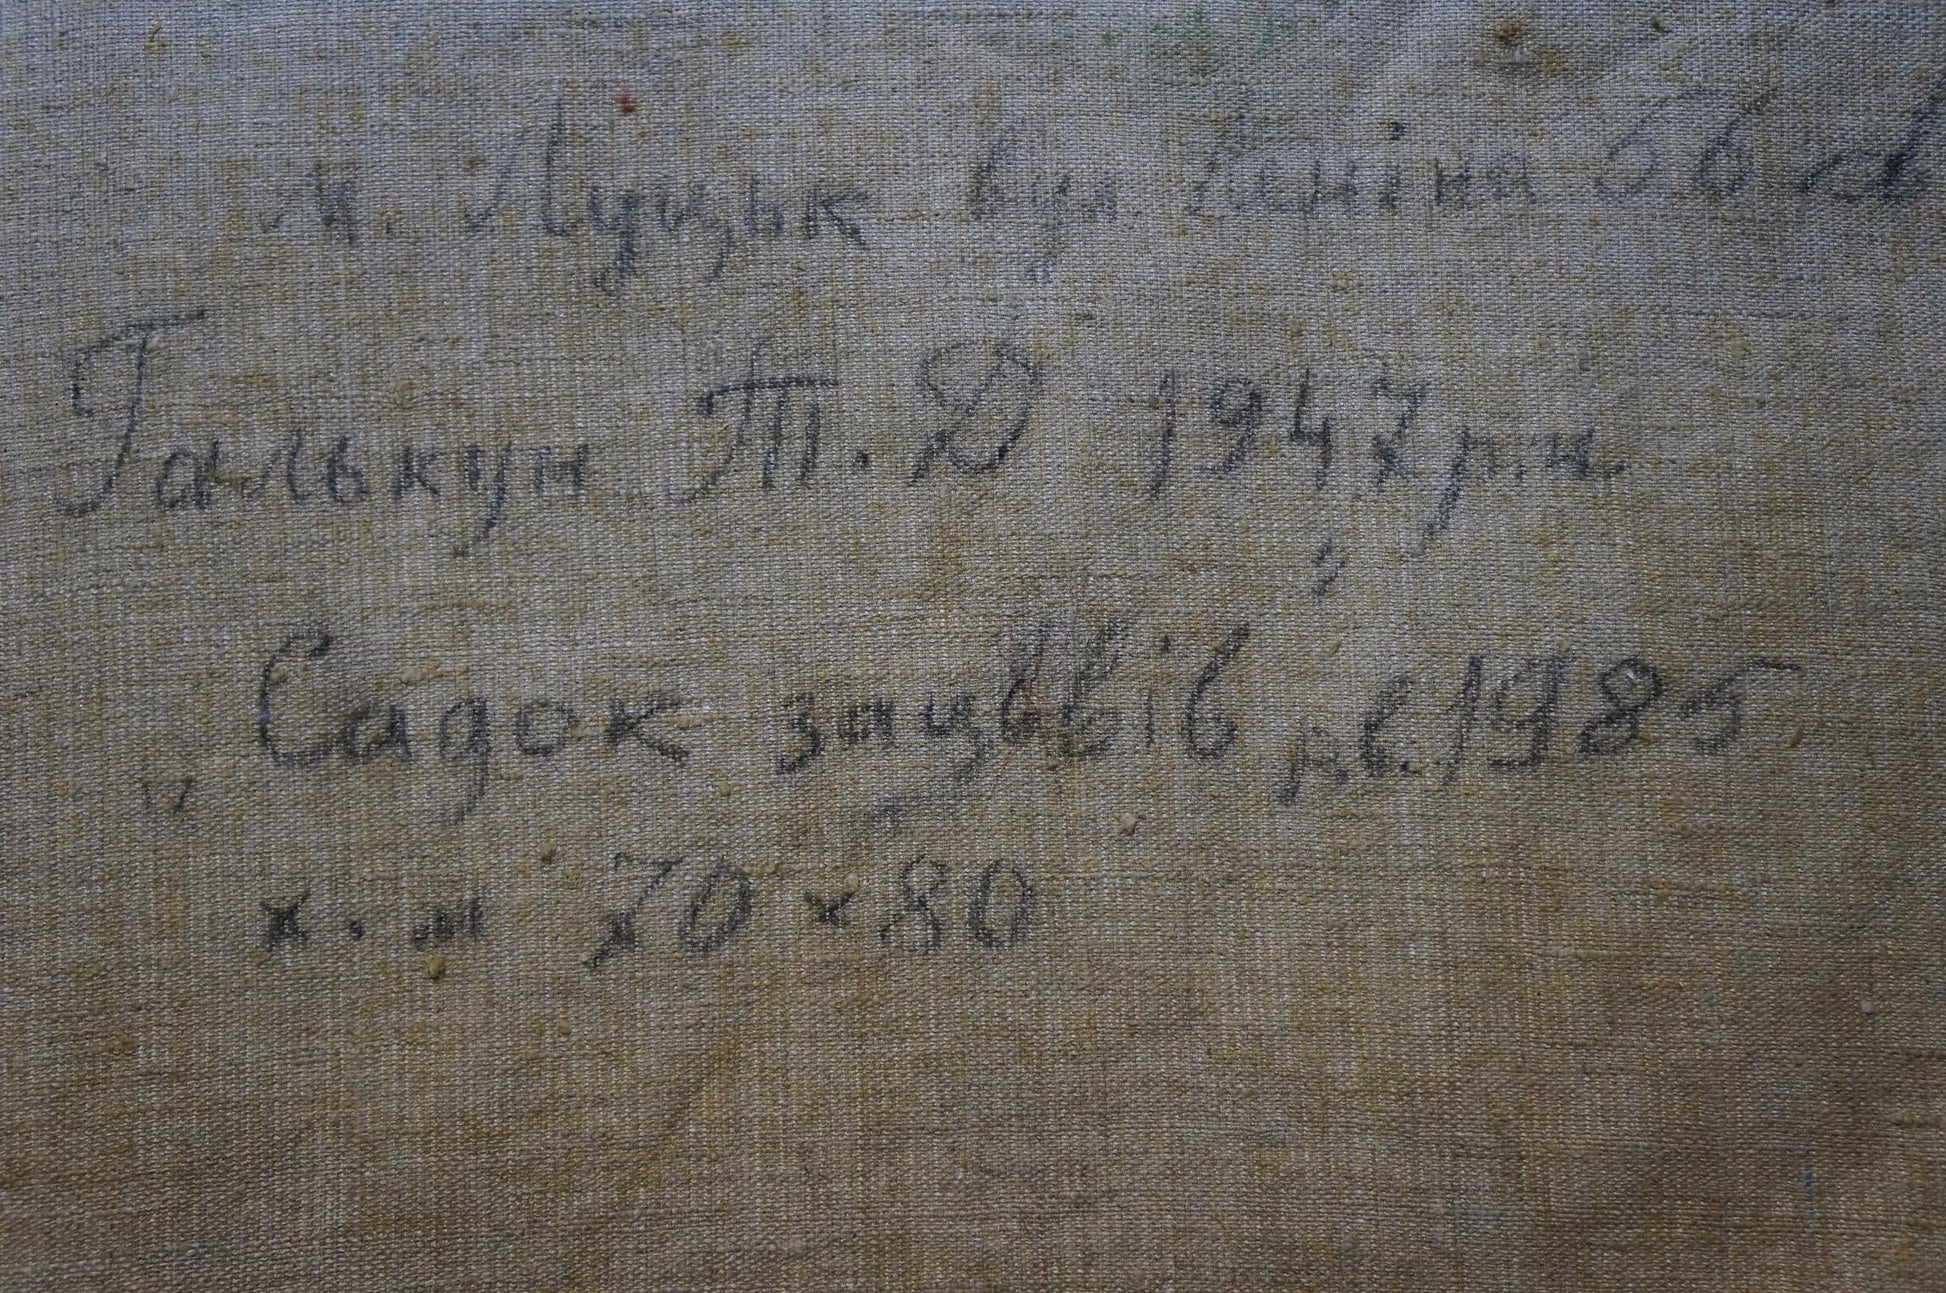 м. Луцьк вул Леніна
Галькун Т. Д 1947 р.н.
"Садок зацвів" рв. 1985
х. м 70 × 80